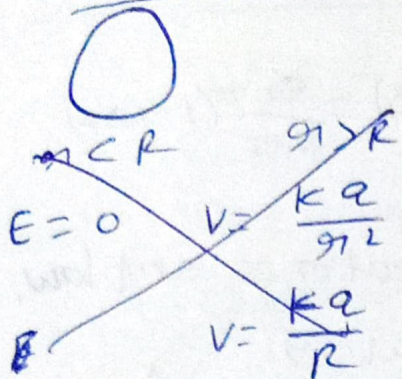 r < R r > R
E = 0 V = kq/r²
E V = kq/R